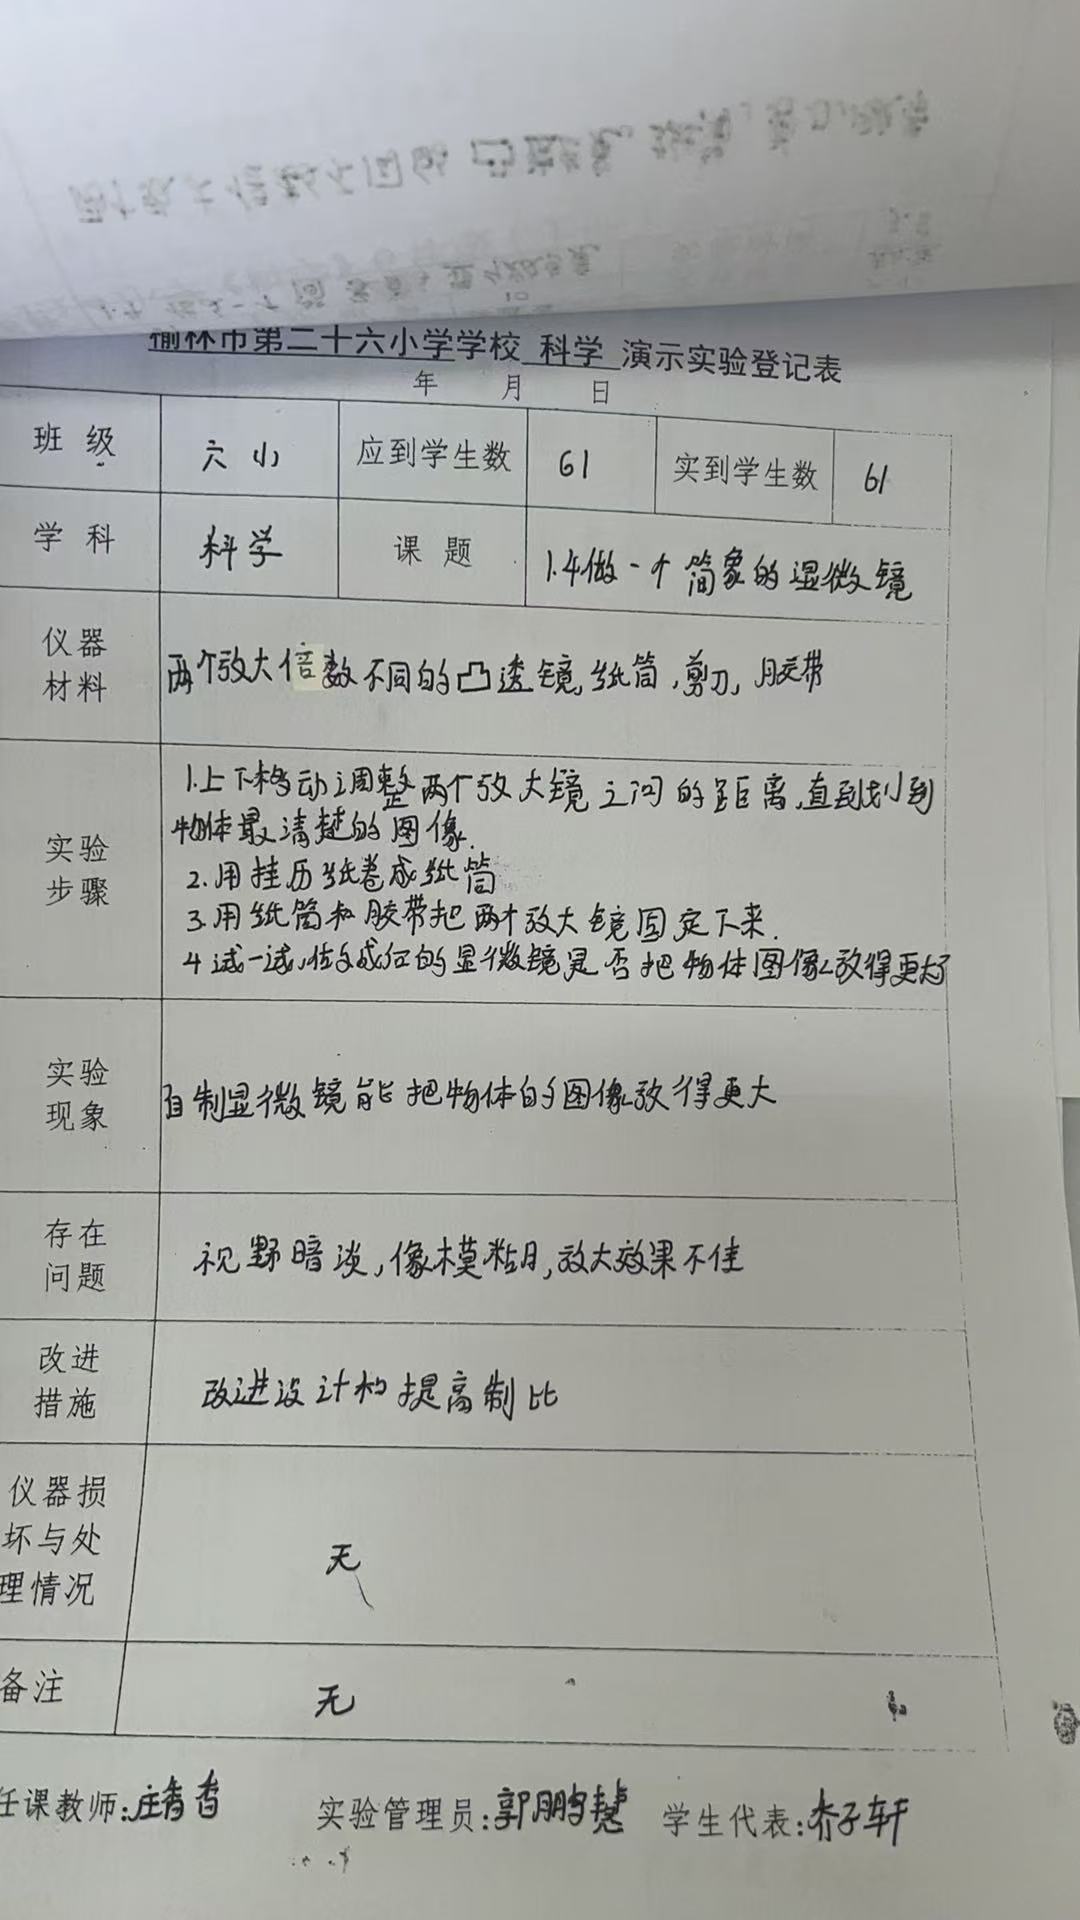 榆林市第二十六小学学校 科学 演示实验登记表
年 月 日
班级 六小 应到学生数 61 实到学生数 61
学科 科学 课题 1.4做一个简象的显微镜
仪器材料 两个放大倍数不同的凸透镜,纸筒,剪刀,胶带
实验步骤
1.上下移动调整两个放大镜之间的距离,直到划到
物体最清楚的图像.
2.用挂历纸卷成纸筒
3.用纸筒和胶带把两个放大镜固定下来.
4试一试,成的显微镜是否把物体图像放得更大
实验现象 自制显微镜能把物体的图像放得更大
存在问题 视野暗淡,像模糊,放大效果不佳
改进措施 改进设计 提高制比
仪器损坏与处理情况 无
备注 无
任课教师: 实验管理员:郭鹏 学生代表:子轩